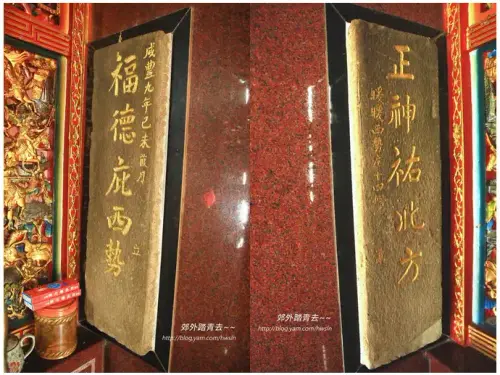 咸豐九年己亥
福德庇西勢
立
郊外踏青去~~
http://blog.yam.com/hwsln
正神祐北方
暖暖西勢
郊外踏青去~~
http://blog.yam.com/hwsln